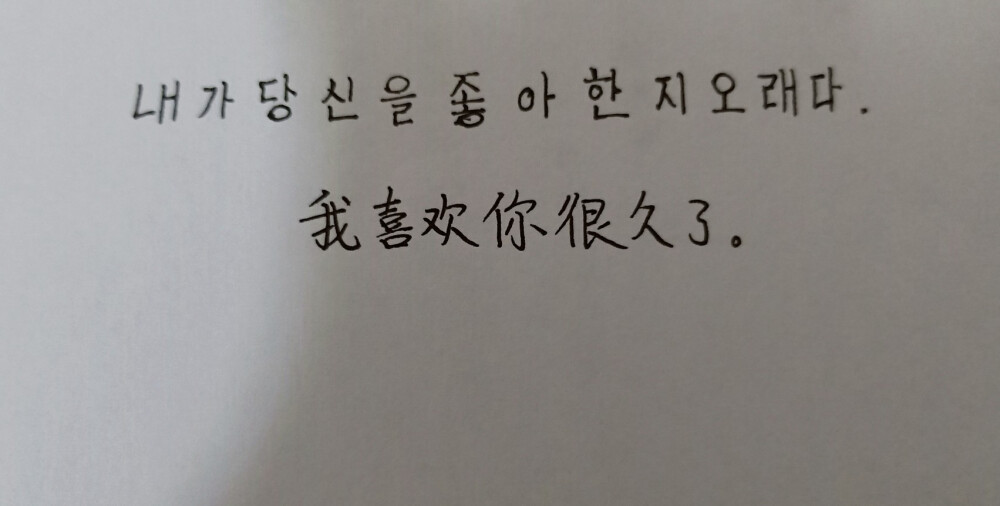 내가 당신을 좋아한지오래다.
我喜欢你很久了。